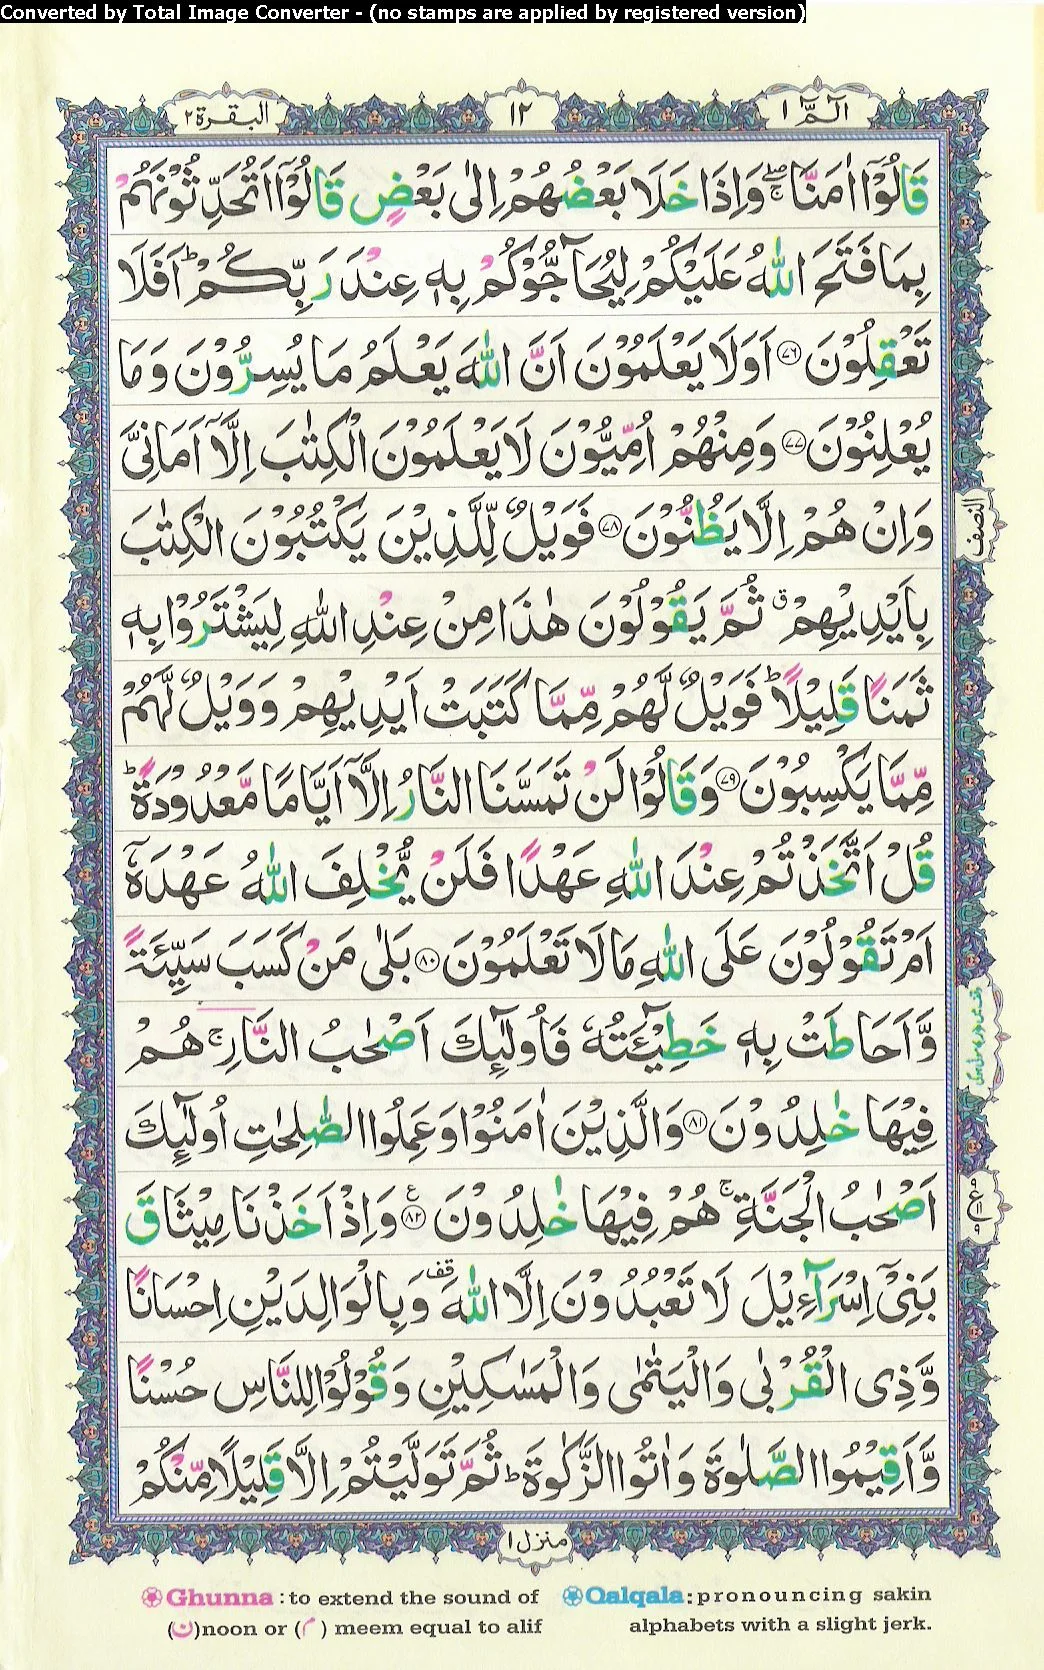 Converted by Total Image Converter - (no stamps are applied by registered version)
الٓمّٓ ١
١٢
البقرة ٢
قَالُوْۤا اٰمَنَّا ۖۚ وَاِذَا خَلَا بَعْضُهُمْ اِلٰى بَعْضٍ قَالُوْۤا اَتُحَدِّثُوْنَهُمْ
بِمَا فَتَحَ اللّٰهُ عَلَيْكُمْ لِيُحَآجُّوْكُمْ بِهٖ عِنْدَ رَبِّكُمْ ؕ اَفَلَا
تَعْقِلُوْنَ ﴿۷۶﴾ اَوَلَا يَعْلَمُوْنَ اَنَّ اللّٰهَ يَعْلَمُ مَا يُسِرُّوْنَ وَمَا
يُعْلِنُوْنَ ﴿۷۷﴾ وَمِنْهُمْ اُمِّيُّوْنَ لَا يَعْلَمُوْنَ الْكِتٰبَ اِلَّاۤ اَمَانِىَّ
وَاِنْ هُمْ اِلَّا يَظُنُّوْنَ ﴿۷۸﴾ فَوَيْلٌ لِّلَّذِيْنَ يَكْتُبُوْنَ الْكِتٰبَ
النصف
بِاَيْدِيْهِمْ ۗ ثُمَّ يَقُوْلُوْنَ هٰذَا مِنْ عِنْدِ اللّٰهِ لِيَشْتَرُوْا بِهٖ
ثَمَنًا قَلِيْلًا ؕ فَوَيْلٌ لَّهُمْ مِّمَّا كَتَبَتْ اَيْدِيْهِمْ وَوَيْلٌ لَّهُمْ
مِّمَّا يَكْسِبُوْنَ ﴿۷۹﴾ وَقَالُوْا لَنْ تَمَسَّنَا النَّارُ اِلَّاۤ اَيَّامًا مَّعْدُوْدَةً ؕ
قُلْ اَتَّخَذْتُمْ عِنْدَ اللّٰهِ عَهْدًا فَلَنْ يُّخْلِفَ اللّٰهُ عَهْدَهٗۤ
اَمْ تَقُوْلُوْنَ عَلَى اللّٰهِ مَا لَا تَعْلَمُوْنَ ﴿۸۰﴾ بَلٰى مَنْ كَسَبَ سَيِّئَةً
وَّاَحَاطَتْ بِهٖ خَطِيْٓـَٔتُهٗ فَاُولٰٓئِكَ اَصْحٰبُ النَّارِ ۚ هُمْ
فِيْهَا خٰلِدُوْنَ ﴿۸۱﴾ وَالَّذِيْنَ اٰمَنُوْا وَعَمِلُوا الصّٰلِحٰتِ اُولٰٓئِكَ
اَصْحٰبُ الْجَنَّةِ ۚ هُمْ فِيْهَا خٰلِدُوْنَ ﴿۸۲﴾ وَاِذْ اَخَذْنَا مِيْثَاقَ
ع
بَنِىْۤ اِسْرَآءِيْلَ لَا تَعْبُدُوْنَ اِلَّا اللّٰهَ قف وَبِالْوَالِدَيْنِ اِحْسَانًا
وَّذِى الْقُرْبٰى وَالْيَتٰمٰى وَالْمَسٰكِيْنِ وَقُوْلُوْا لِلنَّاسِ حُسْنًا
وَّاَقِيْمُوا الصَّلٰوةَ وَاٰتُوا الزَّكٰوةَ ؕ ثُمَّ تَوَلَّيْتُمْ اِلَّا قَلِيْلًا مِّنْكُمْ
منزل ١
Ghunna : to extend the sound of
(ن)noon or (م) meem equal to alif
Qalqala: pronouncing sakin
alphabets with a slight jerk.